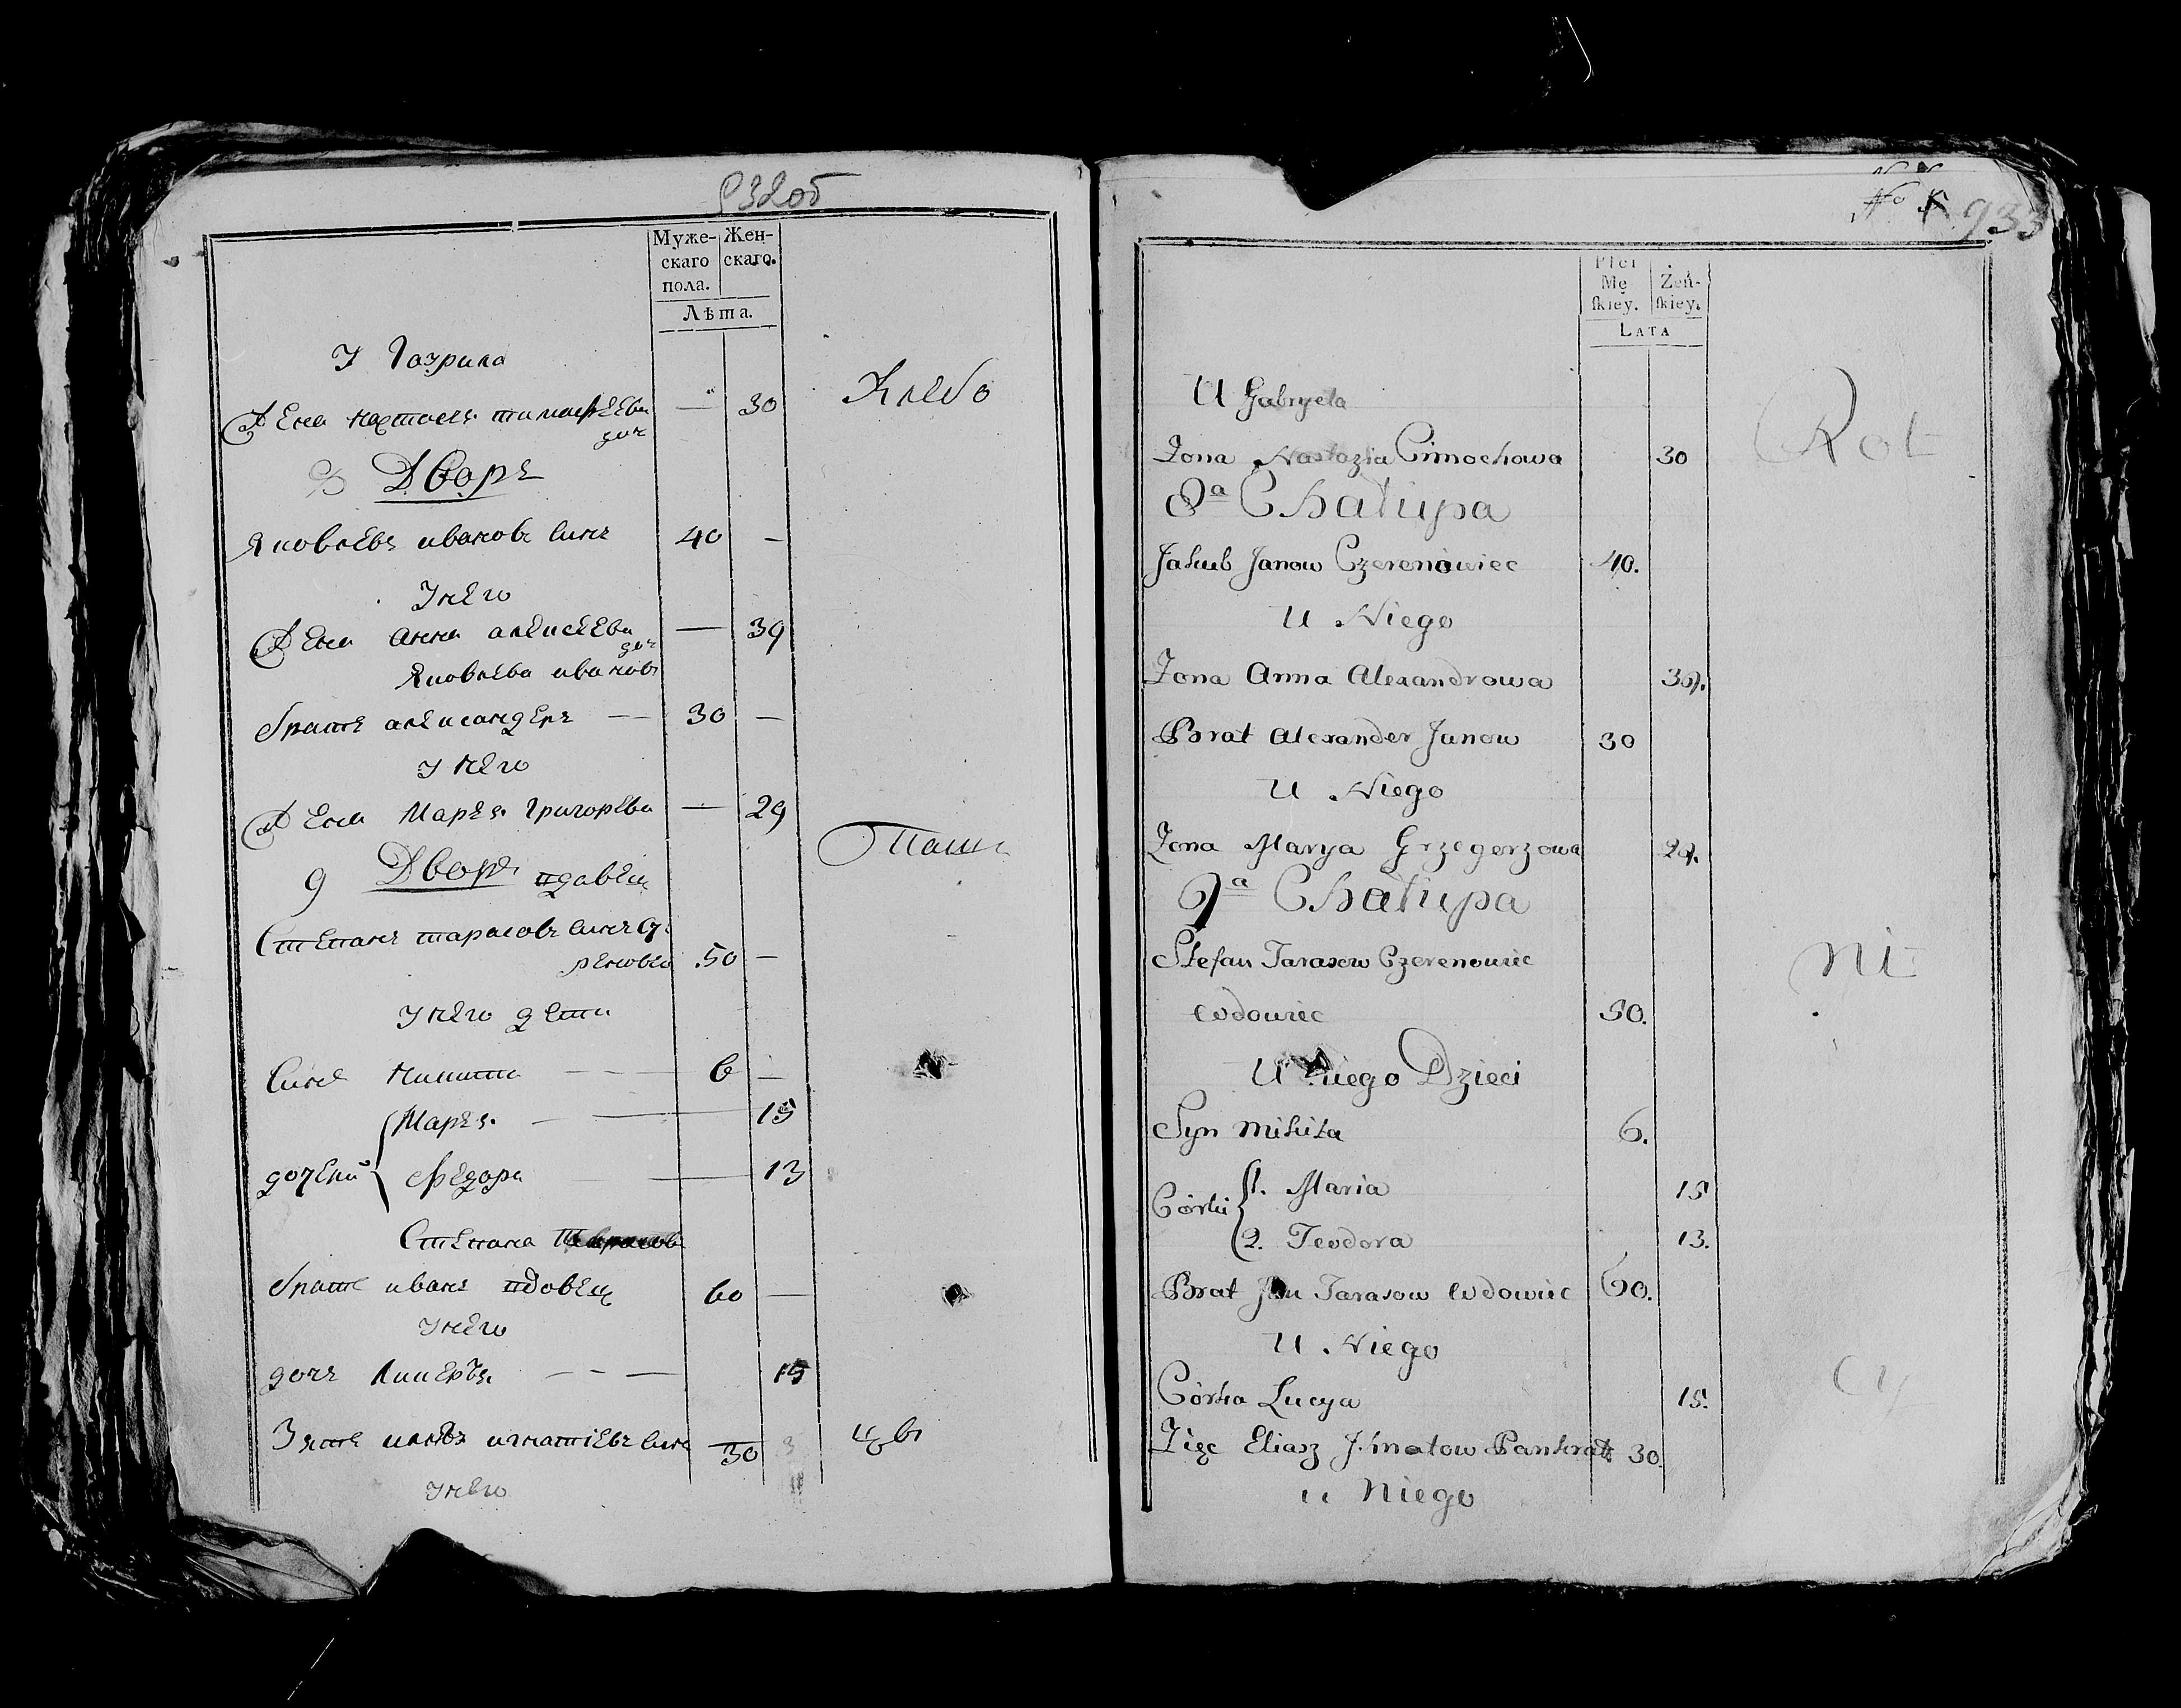 932об
Муже-скаго пола. Жен-скаго.
Лѣта.
У Гаврила
Жена настася тимофеева 30
доч
8 Дворъ
Яковлевъ ивановъ синъ 40 —
У него
Жена анна алексеева — 39
доч
Яковлева иванов
братъ александеръ — 30 —
У него
Жена Маръя григорева — 29
9 Дворъ вдовец
Степанъ тарасовъ синъ
50 —
У него дети
Синъ никита — 6 —
Маръя — 15
дочери
Федора — 13
Степана
братъ иванъ вдовец 60 —
У него
дочъ — 15
Зять игнатіевъ синъ 30
У него
№ 933
Płci Mę ſkiey. Żeń-ſkiey.
LATA
U Gabryela
Żona Nastazia Cimochowa 30
8a Chałupa
Jakub Janow Czerenowiec 40.
U Niego
Żona Anna Alexandrowa 39.
Brat Alexander Janow 30
U Niego
Żona Marya Grzegorzowa 29.
9a Chałupa
Stefan Tarasow Czerenowiec
wdowiec 50.
U Niego Dzieci
Syn Mikita 6.
Córki
1. Maria 15
2. Teodora 13.
Brat Jan Tarasow wdowiec 60.
U Niego
Córka Lucya 15.
Zięc Eliasz 30.
u Niego